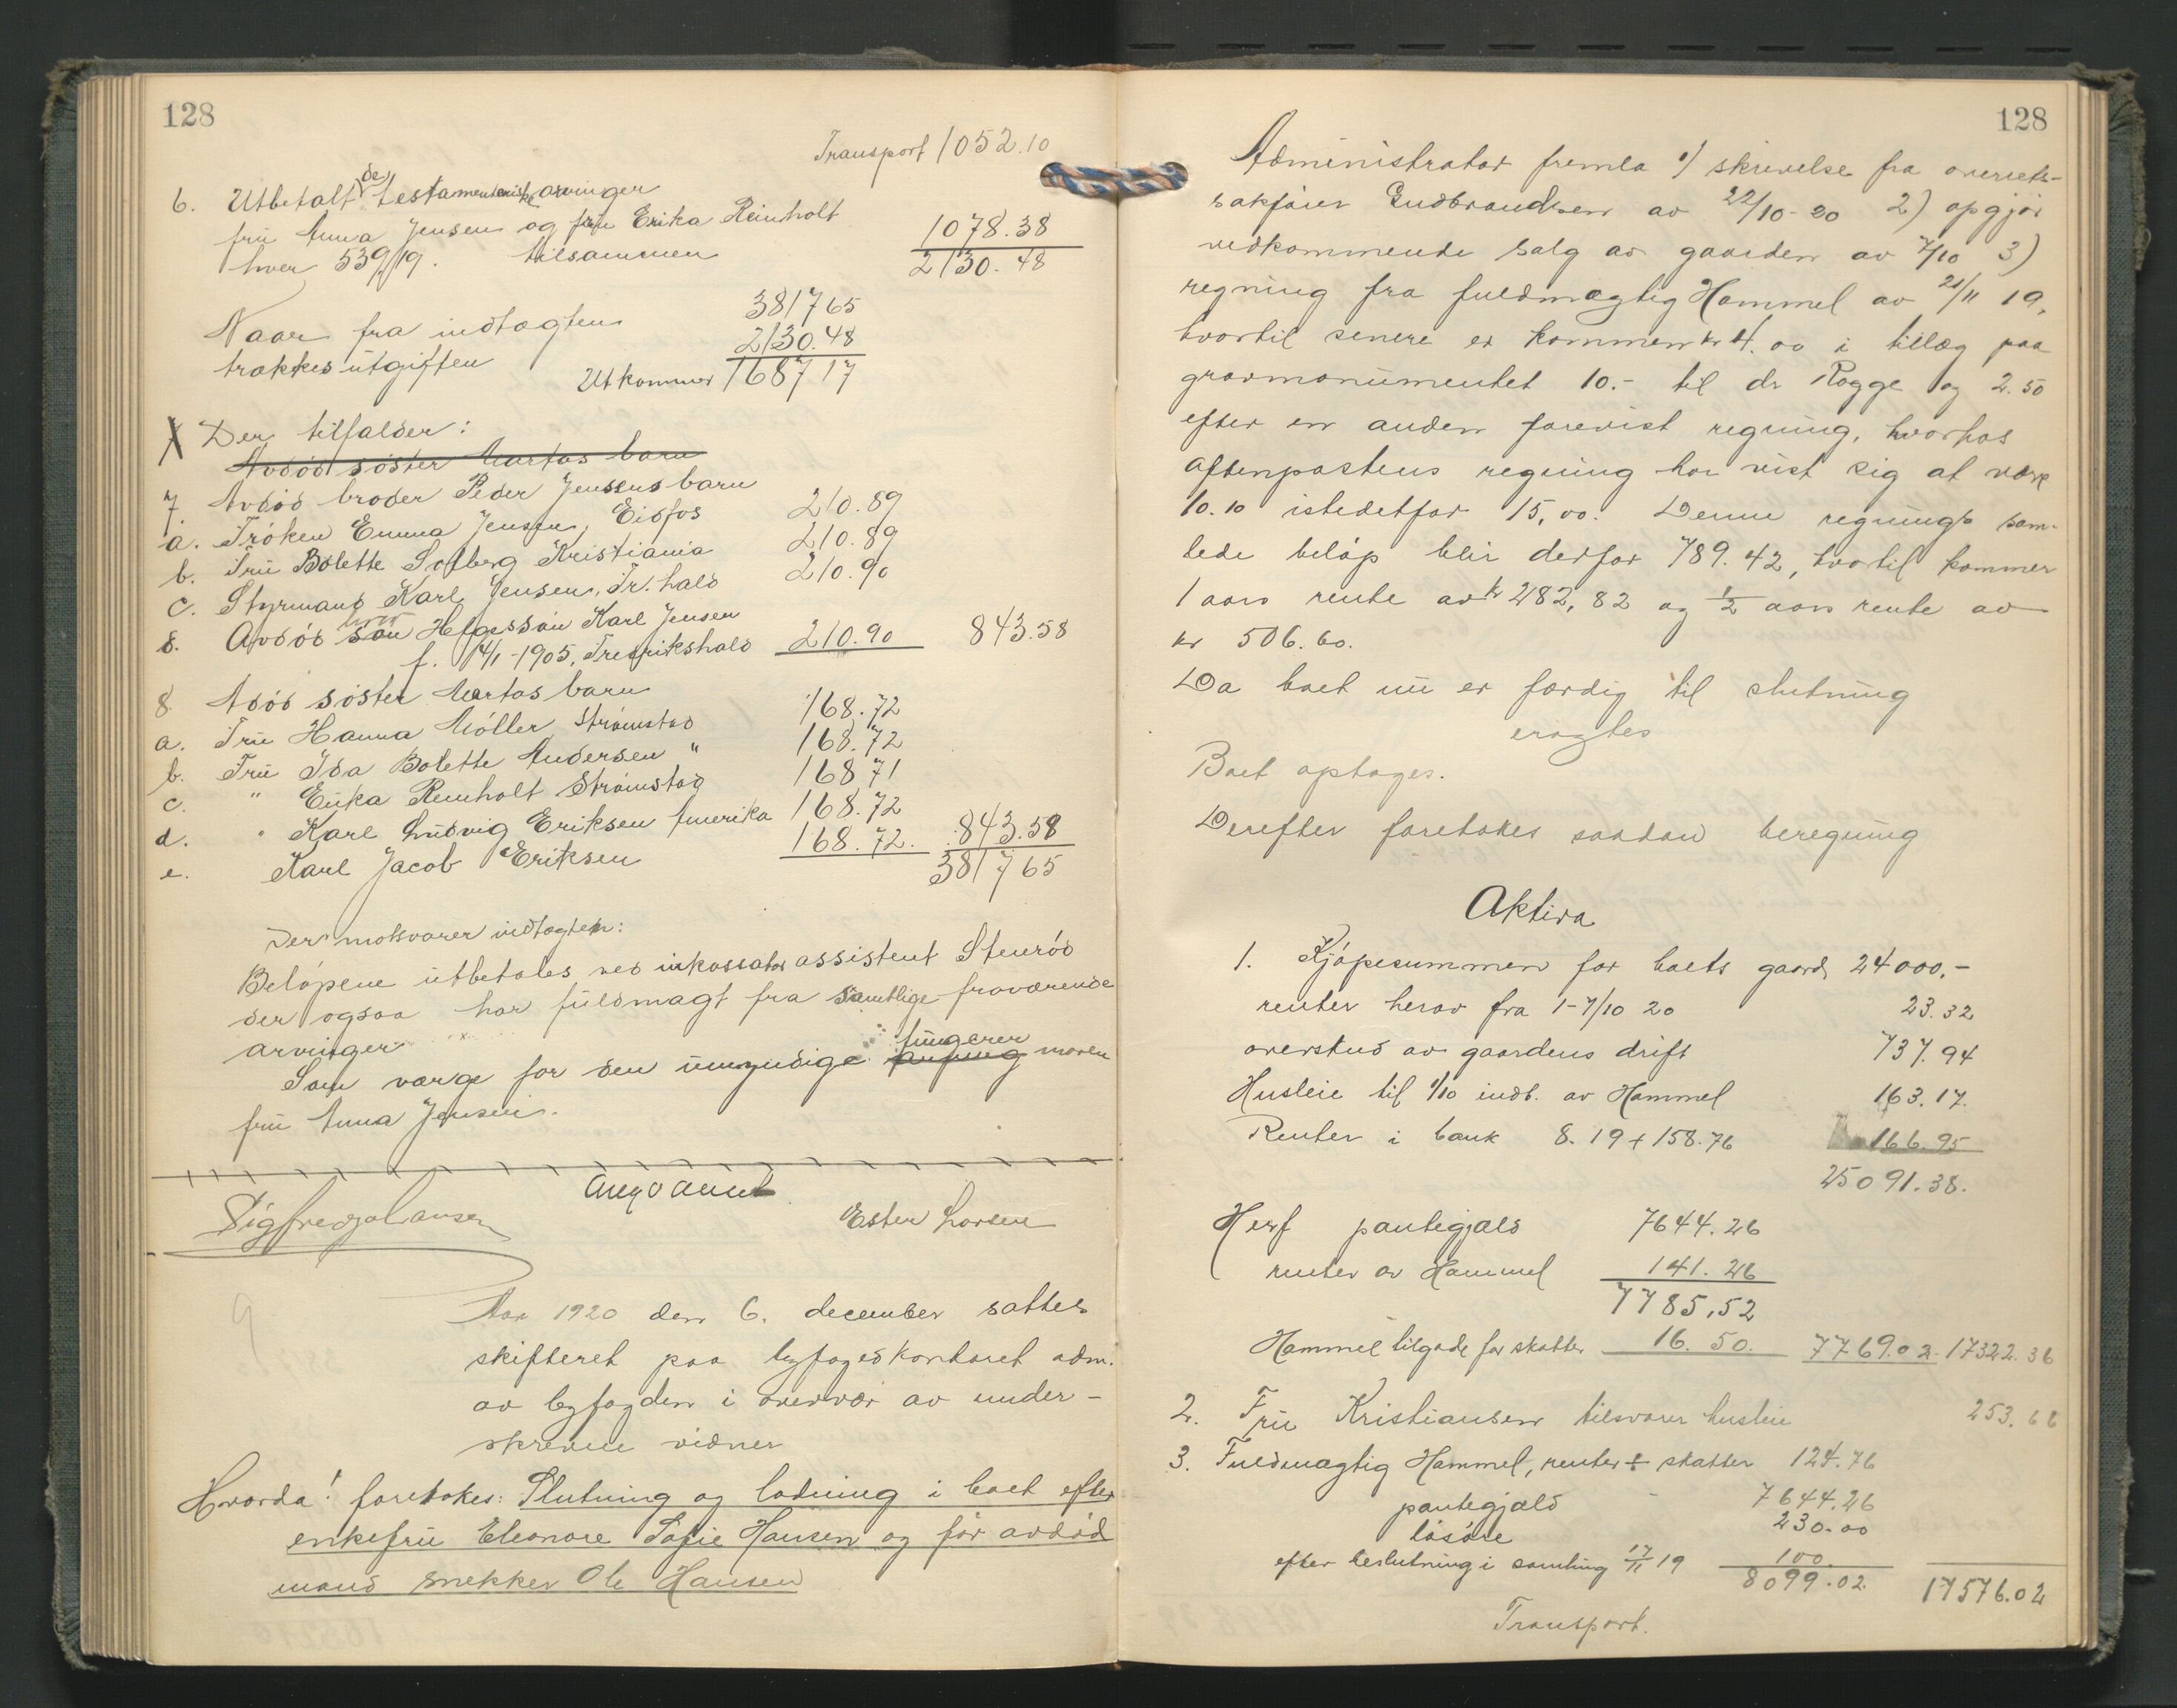 128
Transport 1052.10
6. Utbetalt de testamentariske arvinger
fru Anna Jensen og fru Erika Reinholt
hver 539/19. tilsammen 1078.38
2130.48
Naar fra indtægten 3817 65
trækkes utgiften 2130.48
Utkommer 1687 17
X Der tilfalder:
Avdöd söster Martas barn
7. Avdöd broder Peder Jensens barn
a. Fröken Emma Jensen, Eidsfos 210.89
b. Fru Bolette Solberg Kristiania 210.89
c. Styrmand Karl Jensen, Fr.hald 210.90
d. Avdöd sön Helges sön Karl Jensen
f. 14/1-1905, Fredrikshald 210.90 843.58
8. Avdöd söster Martas barn
a. Fru Hanna Möller Strömstad 168.72
b. Fru Ida Bolette Andersen " 168.72
c. " Erika Reinholt Strömstad 168,71
d. " Karl Ludvig Eriksen Amerika 168.72
e. Karl Jacob Eriksen 168.72. 843.59
3817 65
Der motsvarer indtægten:
Belöpene utbetales ved inkassator assistent Stenröd
der ogsaa har fuldmagt fra samtlige fraværende
arvinger
Som værge for den umyndige fungerer moren
fru Anna Jensen.
Ester Larsen
Aar 1920 den 6. december sattes
skifteret paa byfogedkontoret adm.
av byfogden i overvær av under-
skrevne vidner
Hvorda! foretokes: Slutning og lodning i boet efter
enkefru Eleonore Sofie Hansen og för avdöd
mand snekker Ole Hansen
128
Administrator fremla 1) skrivelse fra overrets-
sakförer Gudbrandsen av 22/10-20 2) opgjör
vedkommende salg av gaarden av 7/10 3)
regning fra fuldmægtig Hammel av 21/11 19,
hvortil senere er kommen kr 4.00 i tillæg paa
gravmonumentet 10.- til dr Rogge og 2.50
efter en anden forevist regning, hvorhos
Aftenpostens regning har vist sig at være
10.10 istedetfor 15,00. Denne regnings sam-
lede belöp blir derfor 789.42, hvortil kommer
1 aars rente av kr 282,82 og 1/2 aars rente av
kr 506.60.
Da boet nu er færdig til slutning
eragtes
Boet optages.
Derefter foretokes saadan beregning
Aktiva
1. Kjöpesummen for boets gaard 24000.-
renter herav fra 1-7/10 20 23.32
overskud av gaardens drift 737.94
Husleie til 1/10 indb. av Hammel 163.17.
Renter i bank 8.19 + 158.76 166.95
25091.38.
Herf pantegjæld 7644.26
renter av Hammel 141.26
7785,52
Hammel tilgode for skatter 16.50. 7769.02. 17322.36
2. Fru Kristiansen tilsvarer husleie 253.66
3. Fuldmægtig Hammel, renter ÷ skatter 124.76
pantegjæld 7644.26
lösöre 230.00
efter beslutning i samling 17/11 19 100.
8099.02 17576.02
Transport.